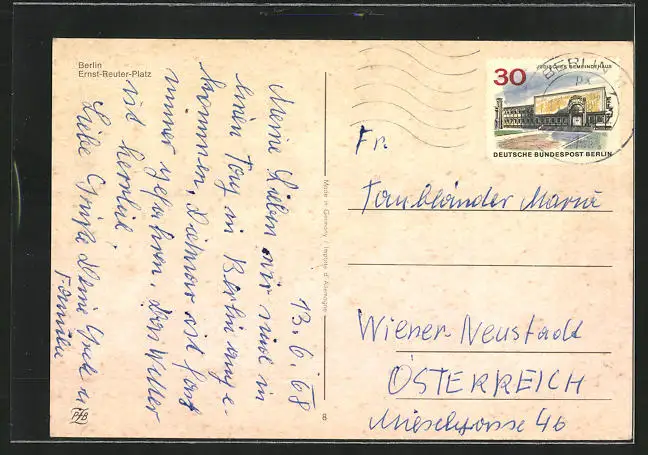 Berlin
Ernst-Reuter-Platz
13.6.68
Meine Lieben wir sind in
einen Tag in Berlin ange-
kommen, Dietmar ist fast
immer gefahren. Das Wetter
ist herrlich.
Liebe Grüße Deine Grete u
Familie
PHB
Made in Germany / Importé d'Allemagne
8
30
JÜDISCHES GEMEINDEHAUS
DEUTSCHE BUNDESPOST BERLIN
BERLIN
Fr.
Taubländer Maria
Wiener-Neustadt
ÖSTERREICH
46